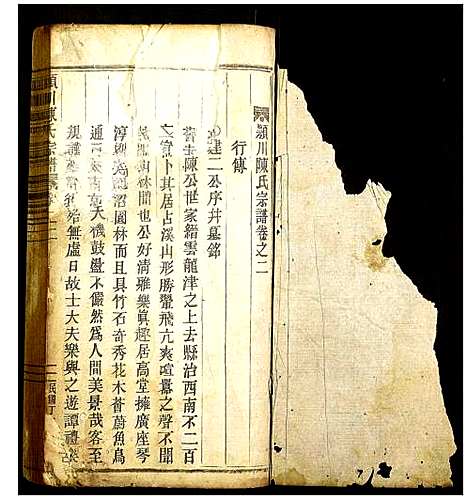 頴川陳氏宗譜卷之二
行傳
建二公序并墓銘
陳公世家縉雲龍津之上去縣治西南不二百
卜其居占溪山形勝翬飛亢爽喧囂之聲不聞
林間也公好清雅樂眞趣居高堂擁廣座琴
淳 沼園林而且具竹石奇秀花木薈蔚魚鳥
通 天機鼓盪不儼然為人間美景哉客至
無虛日故士大夫樂與之遊譚禮
頴川陳氏宗譜
民國丁